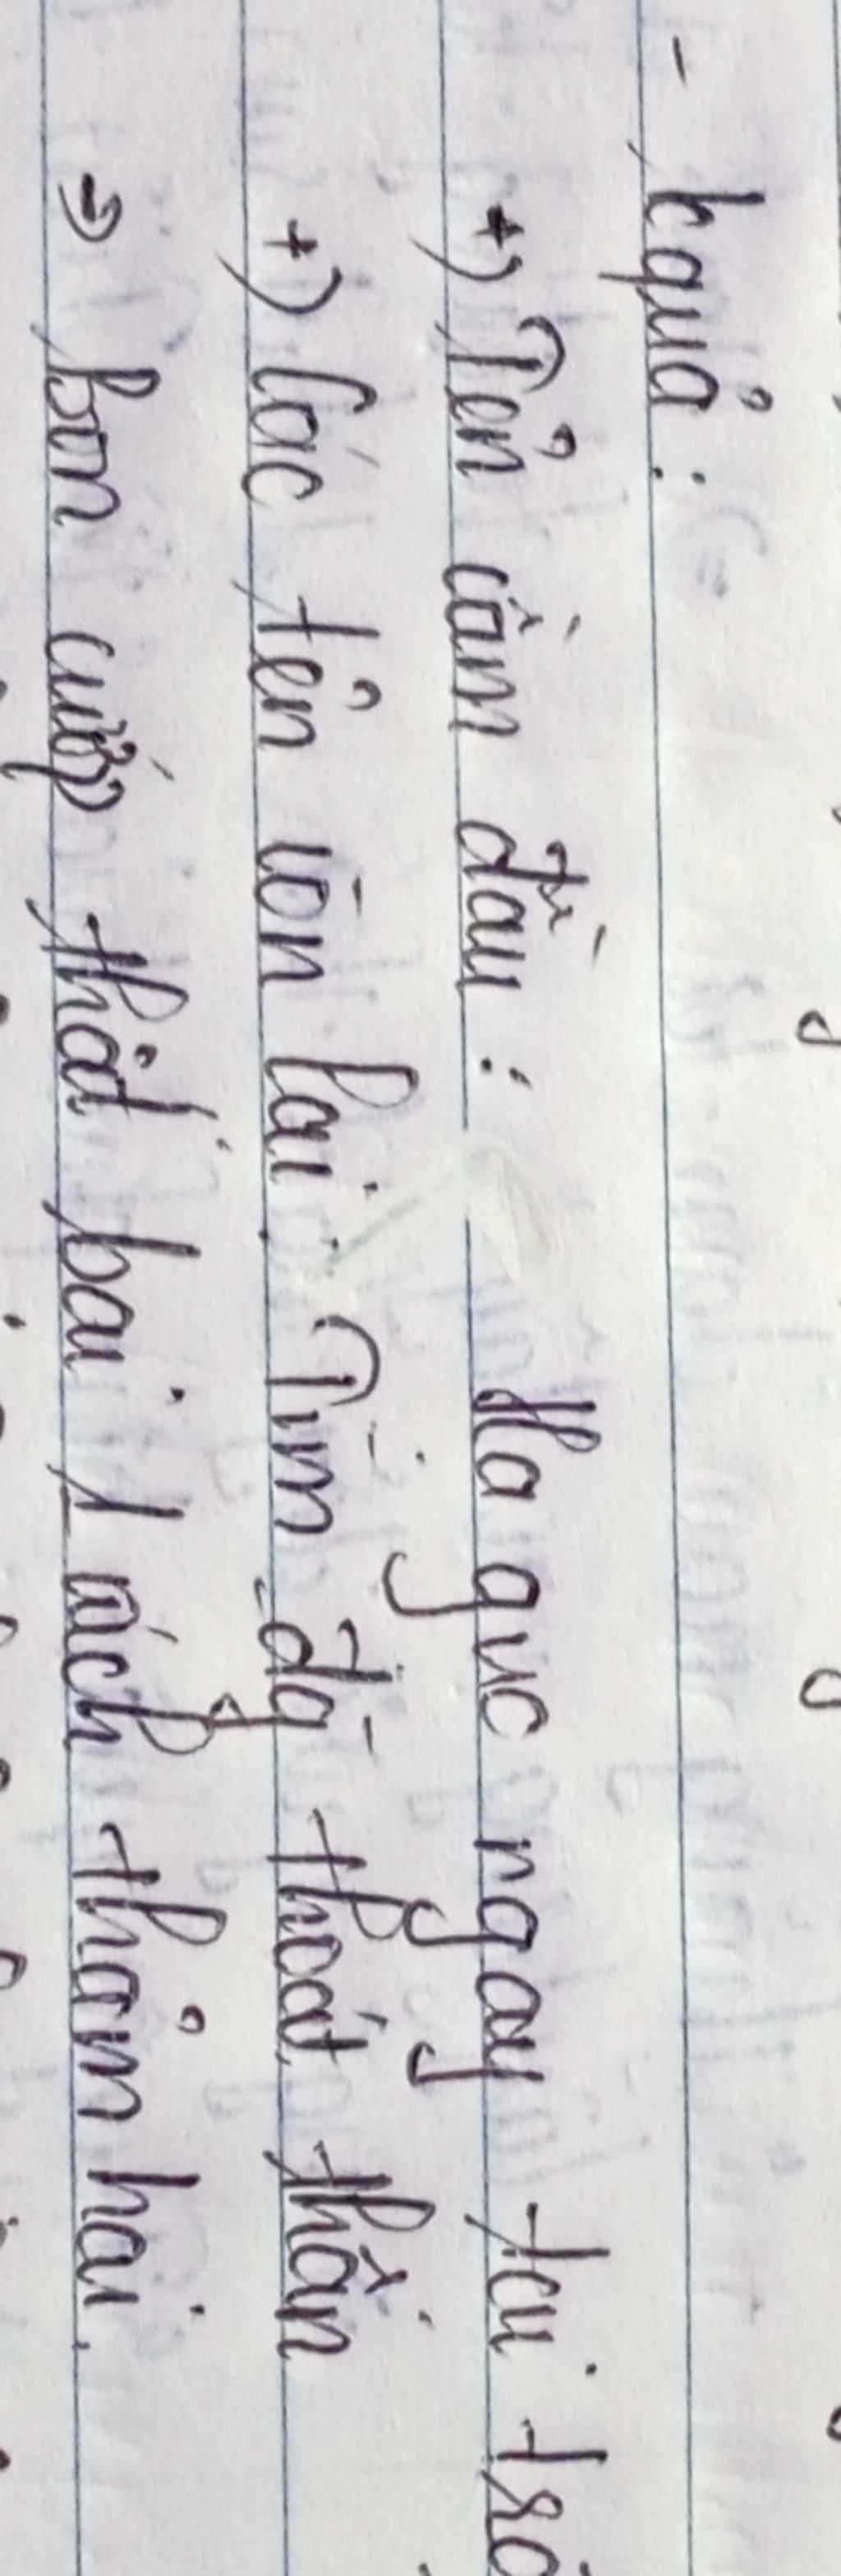 - kquả :
+) Tên cầm đầu : Ma gục ngay tại trậ
+) Các tên còn lại : Tìm đg thoát thân
→ bọn cướp thất bại 1 cách thảm hại.